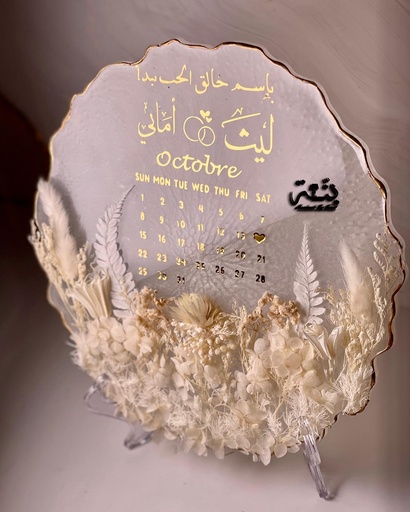 بإسم خالق الحب بدأ
ليث أماني
Octobre
SUN MON TUE WED THU FRI SAT
1 2 3 4 5 6 7
8 9 10 11 12 13
15 16 17 18 19 20 21
22 23 24 25 26 27 28
29 30 31